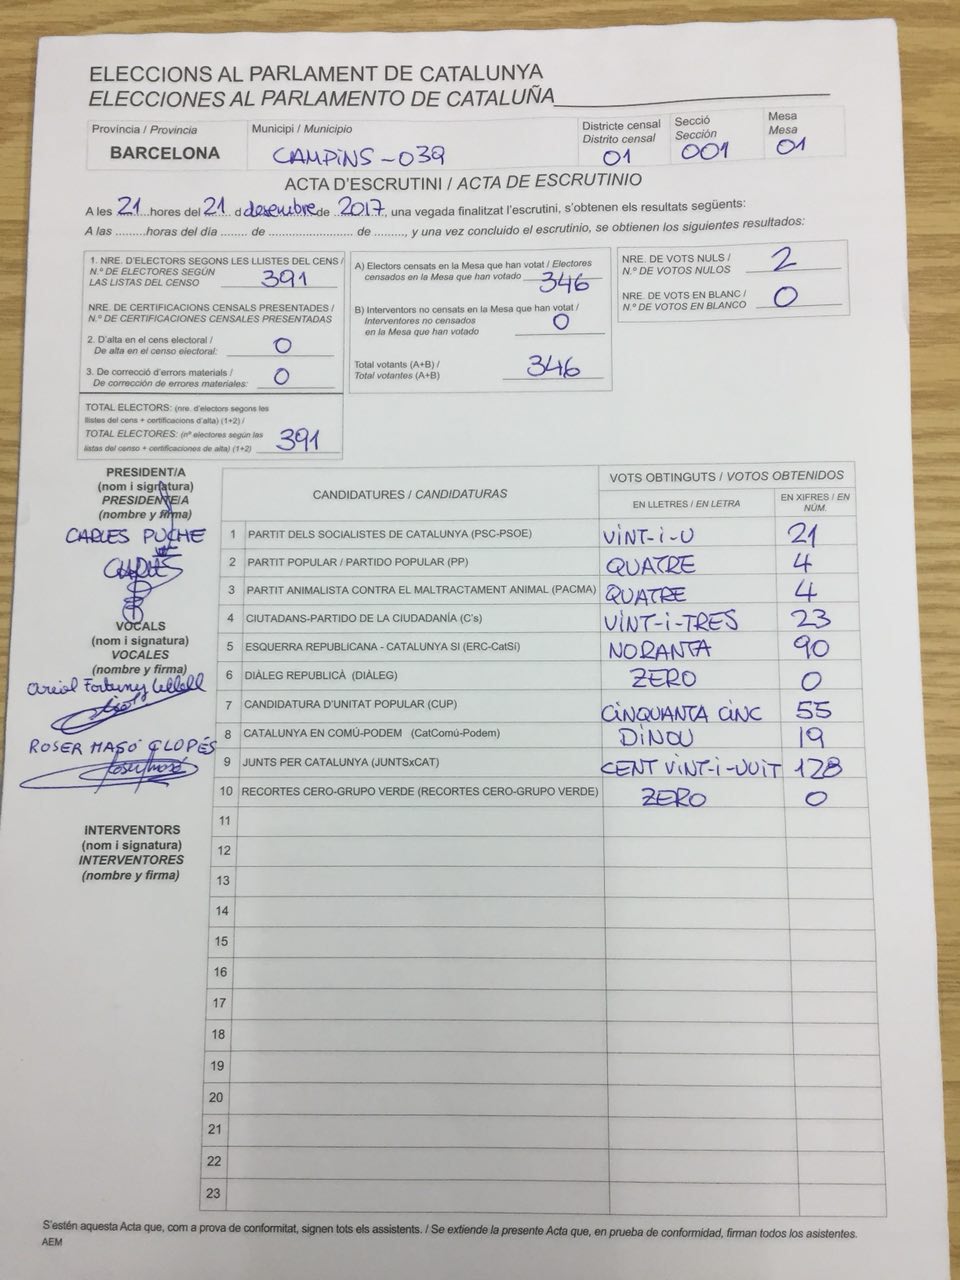 ELECCIONS AL PARLAMENT DE CATALUNYA
ELECCIONES AL PARLAMENTO DE CATALUÑA
Província / Provincia
BARCELONA
Municipi / Municipio
CAMPiNS-039
Districte censal
Distrito censal
01
Secció
Sección
001
Mesa
Mesa
01
ACTA D'ESCRUTINI / ACTA DE ESCRUTINIO
A les 21 hores del 21 d desembre de 2017, una vegada finalitzat l'escrutini, s'obtenen els resultats següents:
A las ......... horas del día ........ de ........................ de ........., y una vez concluido el escrutinio, se obtienen los siguientes resultados:
1. NRE. D'ELECTORS SEGONS LES LLISTES DEL CENS /
N.º DE ELECTORES SEGÚN
LAS LISTAS DEL CENSO
391
NRE. DE CERTIFICACIONS CENSALS PRESENTADES /
N.º DE CERTIFICACIONES CENSALES PRESENTADAS
2. D'alta en el cens electoral /
De alta en el censo electoral:
0
3. De correcció d'errors materials /
De corrección de errores materiales:
0
TOTAL ELECTORS: (nre. d'electors segons les
llistes del cens + certificacions d'alta) (1+2) /
TOTAL ELECTORES: (nº electores según las
listas del censo + certificaciones de alta) (1+2)
391
A) Electors censats en la Mesa que han votat / Electores
censados en la Mesa que han votado
346
B) Interventors no censats en la Mesa que han votat /
Interventores no censados
en la Mesa que han votado
0
Total votants (A+B) /
Total votantes (A+B)
346
NRE. DE VOTS NULS /
N.º DE VOTOS NULOS
2
NRE. DE VOTS EN BLANC /
N.º DE VOTOS EN BLANCO
0
PRESIDENT/A
(nom i signatura)
PRESIDENTE/A
(nombre y firma)
CARLES PUCHE
VOCALS
(nom i signatura)
VOCALES
(nombre y firma)
ROSER MASÓ CLOPÉS
INTERVENTORS
(nom i signatura)
INTERVENTORES
(nombre y firma)
CANDIDATURES / CANDIDATURAS
VOTS OBTINGUTS / VOTOS OBTENIDOS
EN LLETRES / EN LETRA
EN XIFRES / EN NÚM.
1 PARTIT DELS SOCIALISTES DE CATALUNYA (PSC-PSOE) ViNT-i-U 21
2 PARTIT POPULAR / PARTIDO POPULAR (PP) QUATRE 4
3 PARTIT ANIMALISTA CONTRA EL MALTRACTAMENT ANIMAL (PACMA) QUATRE 4
4 CIUTADANS-PARTIDO DE LA CIUDADANÍA (C's) ViNT-i-TRES 23
5 ESQUERRA REPUBLICANA - CATALUNYA SI (ERC-CatSí) NORANTA 90
6 DIÀLEG REPUBLICÀ (DIÀLEG) ZERO 0
7 CANDIDATURA D'UNITAT POPULAR (CUP) CiNQUANTA CiNC 55
8 CATALUNYA EN COMÚ-PODEM (CatComú-Podem) DINOU 19
9 JUNTS PER CATALUNYA (JUNTSxCAT) CENT ViNT-i-VUiT 128
10 RECORTES CERO-GRUPO VERDE (RECORTES CERO-GRUPO VERDE) ZERO 0
11
12
13
14
15
16
17
18
19
20
21
22
23
S'estén aquesta Acta que, com a prova de conformitat, signen tots els assistents. / Se extiende la presente Acta que, en prueba de conformidad, firman todos los asistentes.
AEM